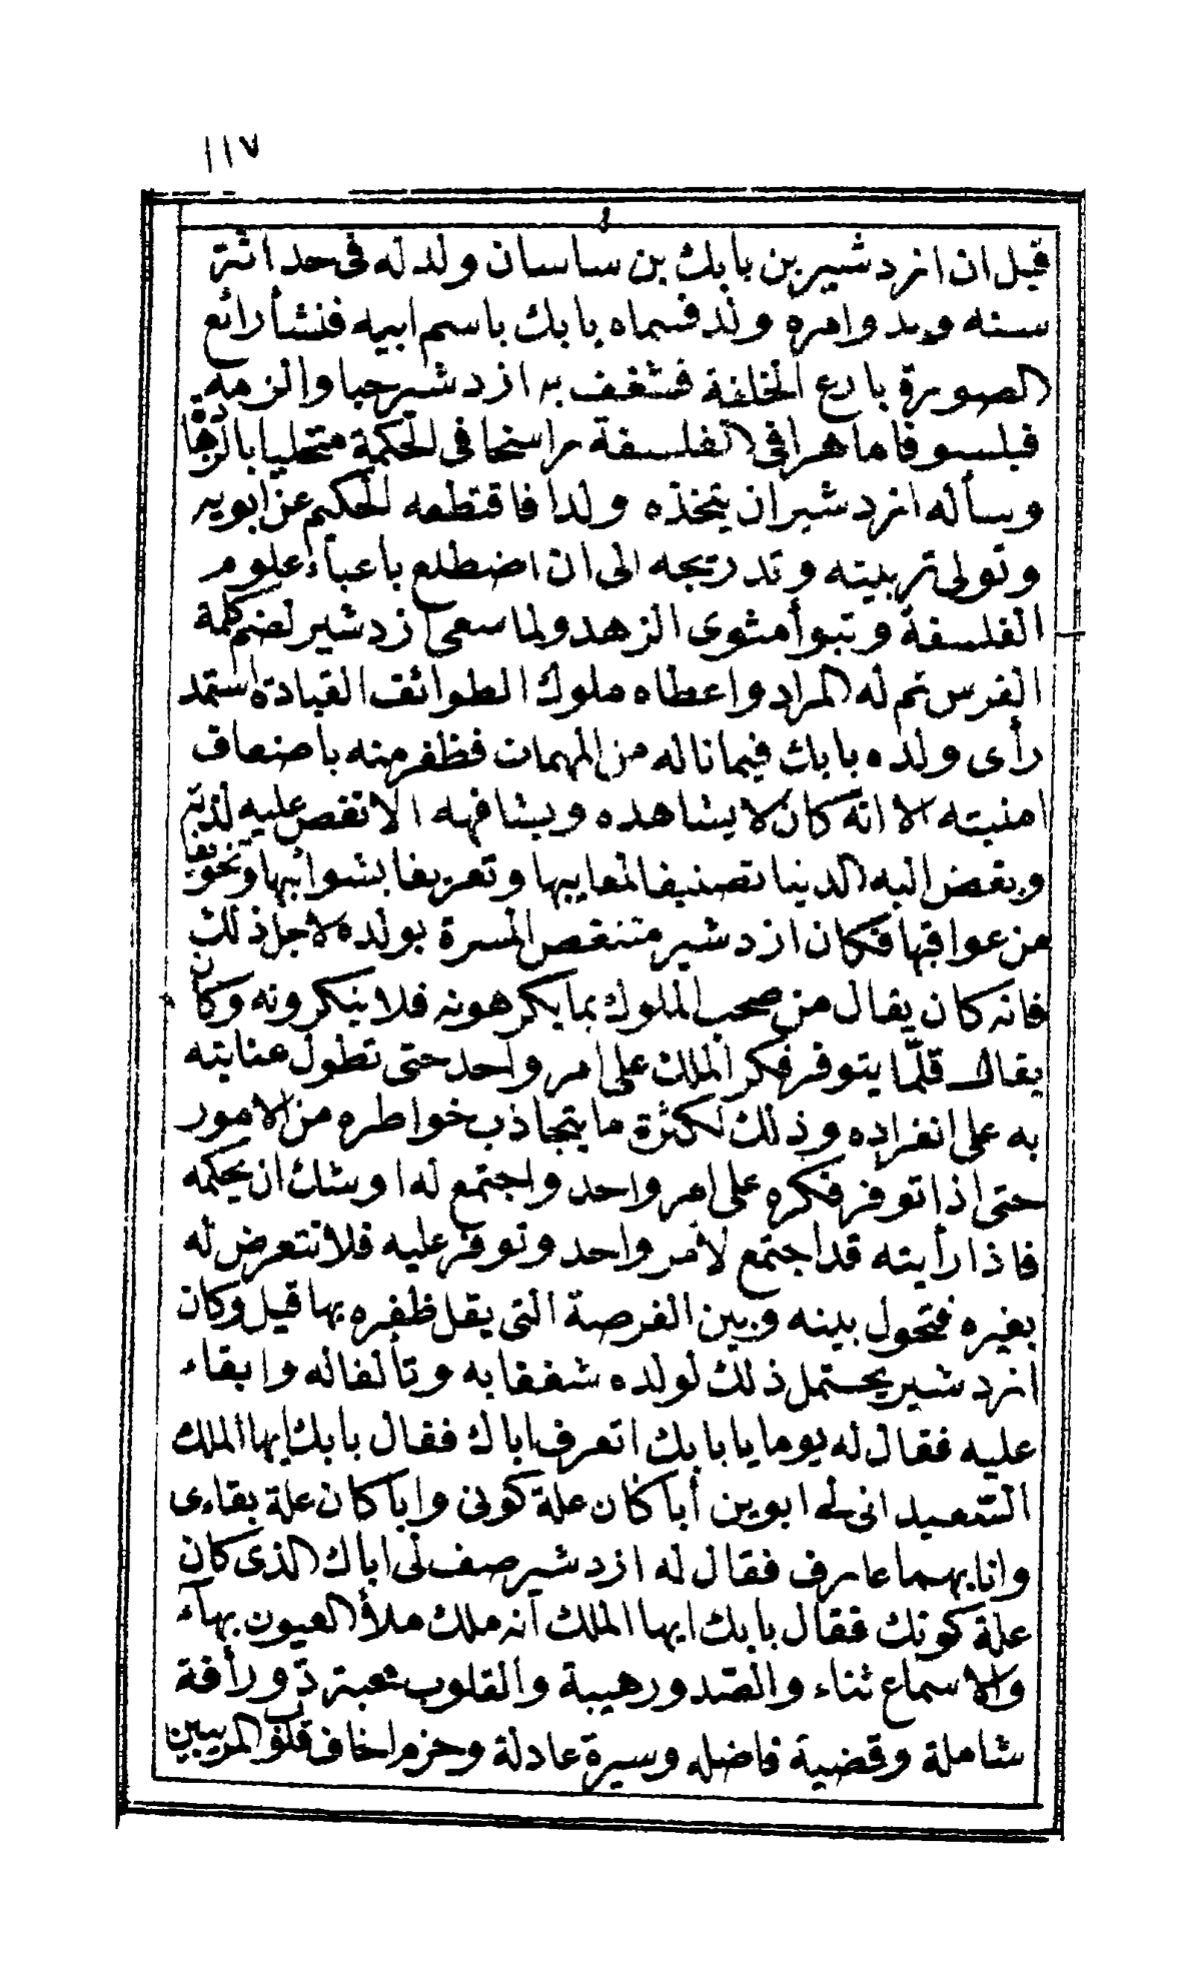 ١١٧
قيل ان ازدشير بن بابك بن ساسان ولد له فى حداثة
سنه وبدو امره ولد فسماه بابك باسم ابيه فنشأ رائع
الصورة بارع الخلقة فشغف به ازدشير حبا والزمه
فيلسوفا ماهرا فى الفلسفة راسخا فى الحكمة متحليا بالزهد
وسأله ازدشير ان يتخذه ولدا فاقتطعه الحكيم عن ابويه
وتولى تربيته وتدريجه الى ان اضطلع باعباء علوم
الفلسفة وتبوأ مثوى الزهد ولما سعى ازدشير لضم كلمة
الفرس تم له المراد واعطاه ملوك الطوائف القيادة استمد
رأى ولده بابك فيما ناله من المهمات فظفر منه باضعاف
امنيته الا انه كان لا يشاهده ويشافهه الا نغص عليه لذته
وبغض اليه الدنيا تصنيفا لمعايبها وتعريفا بشوائبها وتخويفا
من عواقبها فكان ازدشير متنغص المسرة بولده لاجل ذلك
فانه كان يقال من صحب الملوك بما يكرهونه فلا ينكرونه وكان
يقال قلّما يتوفر فكر الملك على امر واحد حتى تطول عنايته
به على انفراده وذلك لكثرة ما يتجاذب خواطره من الامور
حتى اذا توفر فكره على امر واحد واجتمع له اوشك ان يحكمه
فاذا رأيته قد اجتمع لأمر واحد وتوفر عليه فلا تتعرض له
بغيره فتحول بينه وبين الفرصة التى يقل ظفره بها قيل وكان
ازدشير يحتمل ذلك لولده شغفا به وتألفا له وابقاء
عليه فقال له يوما يا بابك اتعرف اباك فقال بابك ايها الملك
السعيد انى له ابوين أبا كان علة كونى وابا كان علة بقاءى
وانا بهما عارف فقال له ازدشير صف لى اباك الذى كان
علة كونك فقال بابك ايها الملك انه ملك ملأ العيون بهاء
والاسماع ثناء والصدور هيبة والقلوب محبة ذو رأفة
شاملة وقضية فاضله وسيرة عادلة وحزم اخاف قلوب المريبين